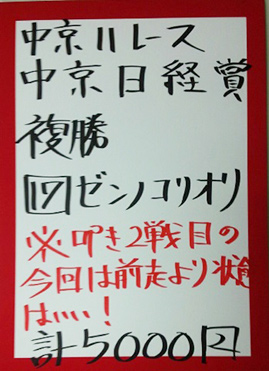 中京11レース
中京日経賞
複勝
17ゼンノコリオリ
※叩き2戦目の
今回は前走より状態
はいい!
計5000円